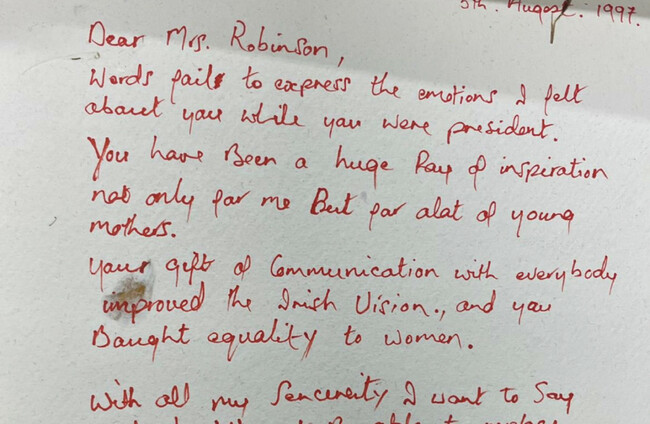 5th. August. 1997.
Dear Mrs. Robinson,
Words fails to express the emotions I felt
about you while you were president.
You have Been a huge Ray of inspiration
not only for me But for alot of young
mothers.
Your gift of Communication with everybody
improved the Irish Vision., and you
Bought equality to women.
With all my Sencereity I want to Say